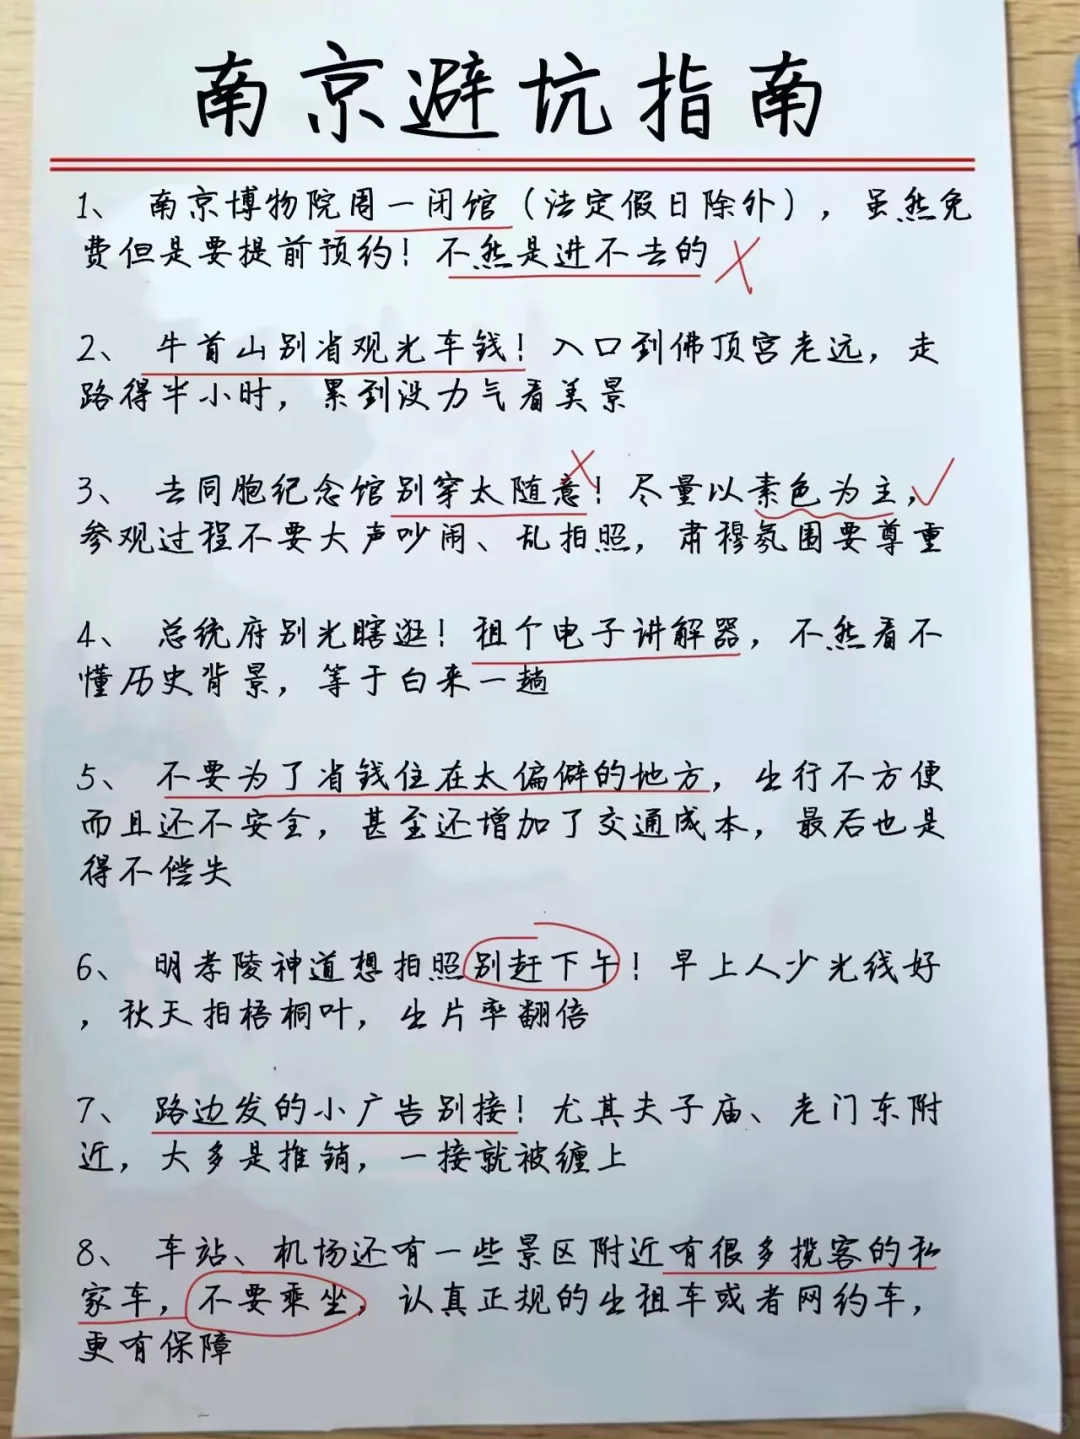 南京避坑指南
1、 南京博物院周一闭馆（法定假日除外），虽然免
费但是要提前预约！不然是进不去的
2、 牛首山别省观光车钱！入口到佛顶宫老远，走
路得半小时，累到没力气看美景
3、 去同胞纪念馆别穿太随意！尽量以素色为主，
参观过程不要大声吵闹、乱拍照，肃穆氛围要尊重
4、 总统府别光瞎逛！租个电子讲解器，不然看不
懂历史背景，等于白来一趟
5、 不要为了省钱住在太偏僻的地方，出行不方便
而且还不安全，甚至还增加了交通成本，最后也是
得不偿失
6、 明孝陵神道想拍照别赶下午！早上人少光线好
，秋天拍梧桐叶，出片率翻倍
7、 路边发的小广告别接！尤其夫子庙、老门东附
近，大多是推销，一接就被缠上
8、 车站、机场还有一些景区附近有很多揽客的私
家车，不要乘坐，认真正规的出租车或者网约车，
更有保障